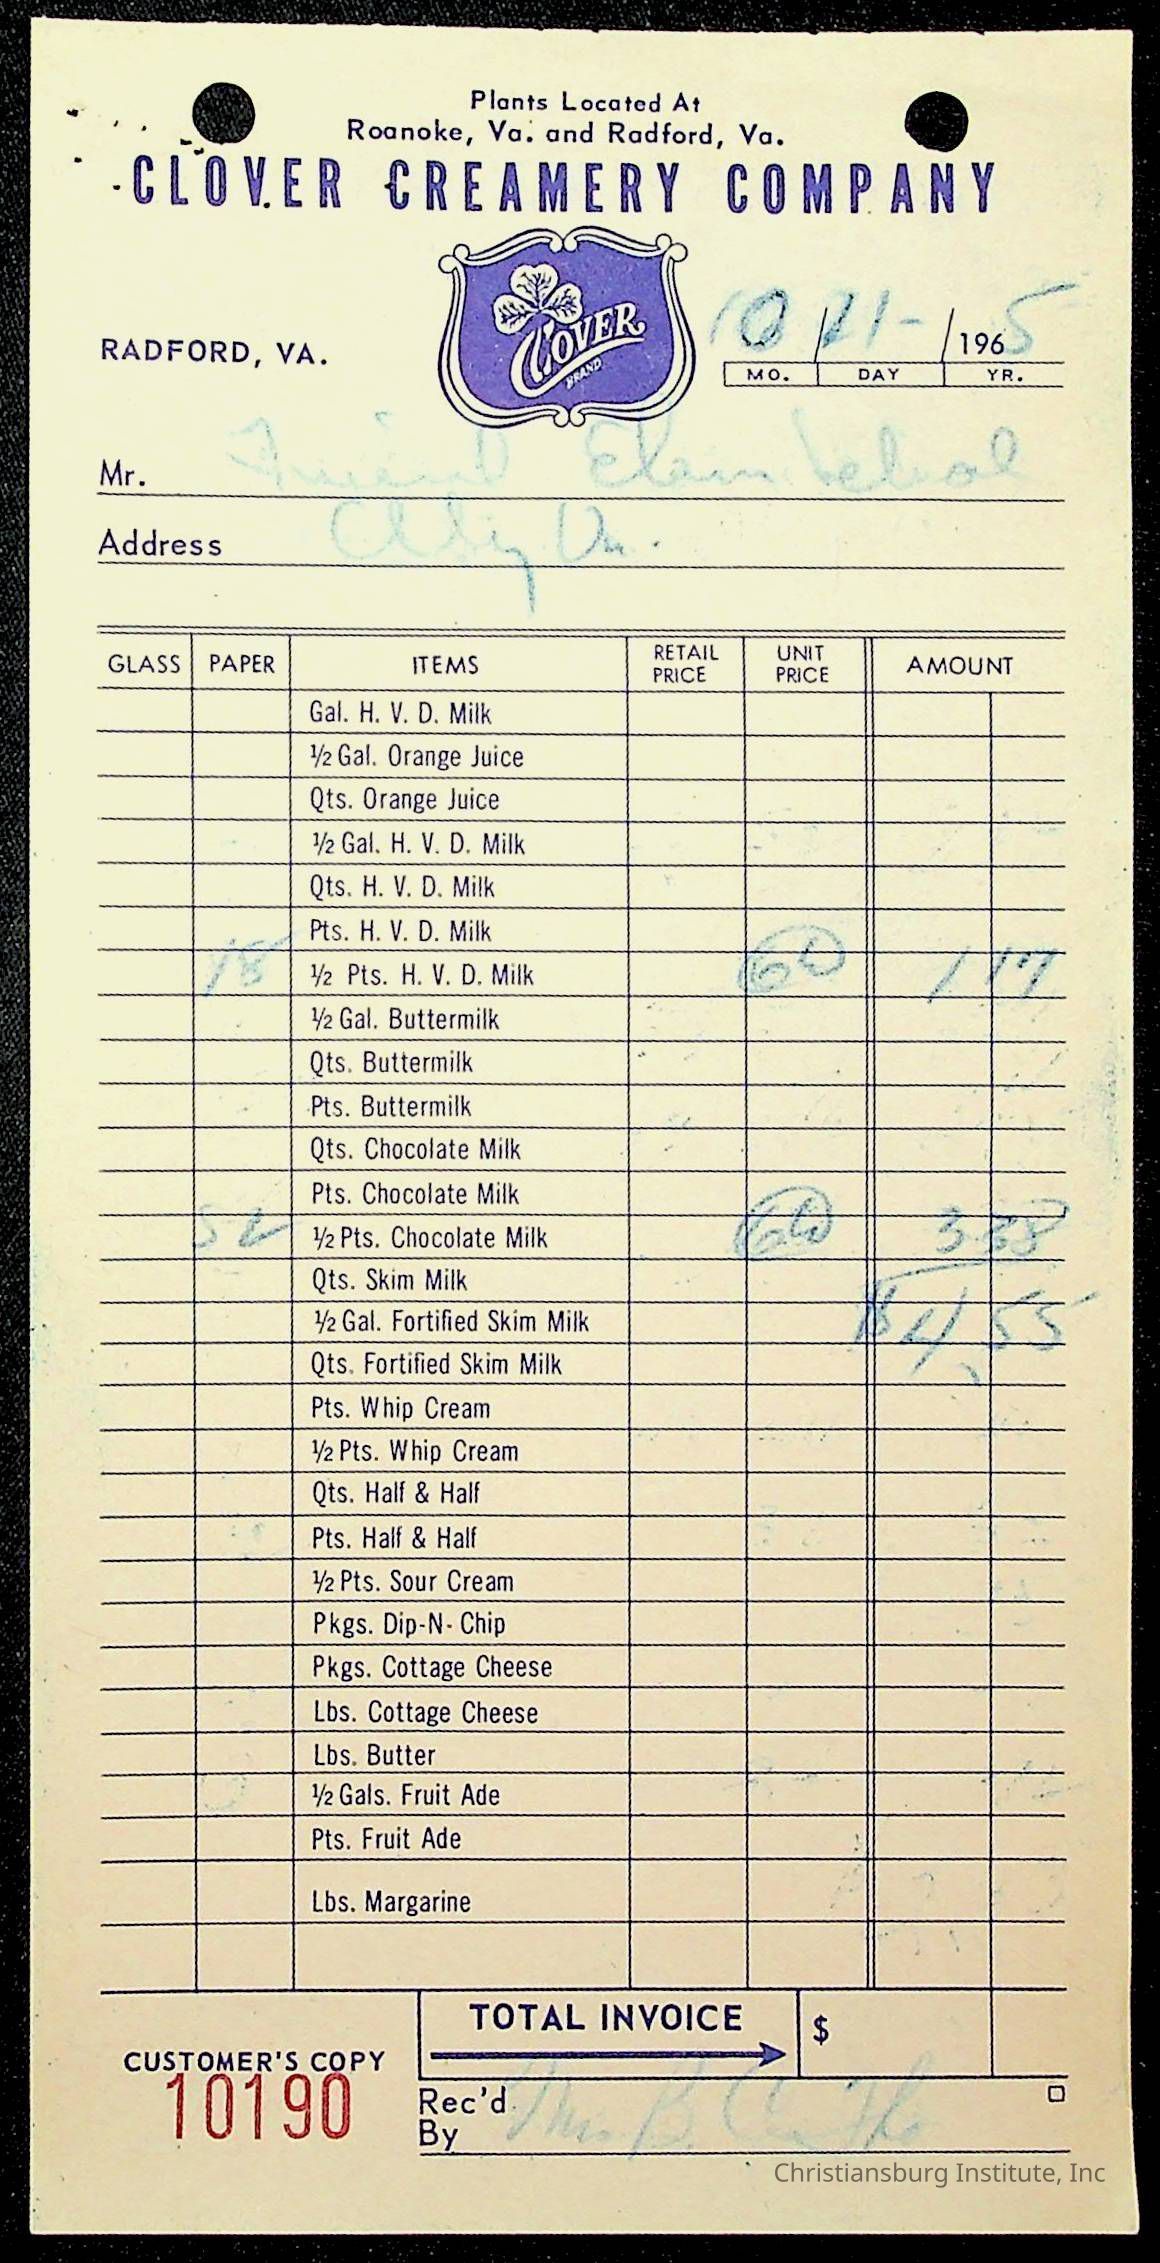 Plants Located At
Roanoke, Va. and Radford, Va.
CLOVER CREAMERY COMPANY
CLOVER
BRAND
RADFORD, VA.
10 / 21- / 1965
MO. DAY YR.
Mr. Friend Elem School
Address Va.
GLASS PAPER ITEMS RETAIL PRICE UNIT PRICE AMOUNT
Gal. H. V. D. Milk
½ Gal. Orange Juice
Qts. Orange Juice
½ Gal. H. V. D. Milk
Qts. H. V. D. Milk
Pts. H. V. D. Milk
18 ½ Pts. H. V. D. Milk 1 17
½ Gal. Buttermilk
Qts. Buttermilk
Pts. Buttermilk
Qts. Chocolate Milk
Pts. Chocolate Milk
52 ½ Pts. Chocolate Milk 3 38
Qts. Skim Milk
½ Gal. Fortified Skim Milk $4,55
Qts. Fortified Skim Milk
Pts. Whip Cream
½ Pts. Whip Cream
Qts. Half & Half
Pts. Half & Half
½ Pts. Sour Cream
Pkgs. Dip-N-Chip
Pkgs. Cottage Cheese
Lbs. Cottage Cheese
Lbs. Butter
½ Gals. Fruit Ade
Pts. Fruit Ade
Lbs. Margarine
TOTAL INVOICE $
CUSTOMER'S COPY
10190
Rec'd By
Christiansburg Institute, Inc